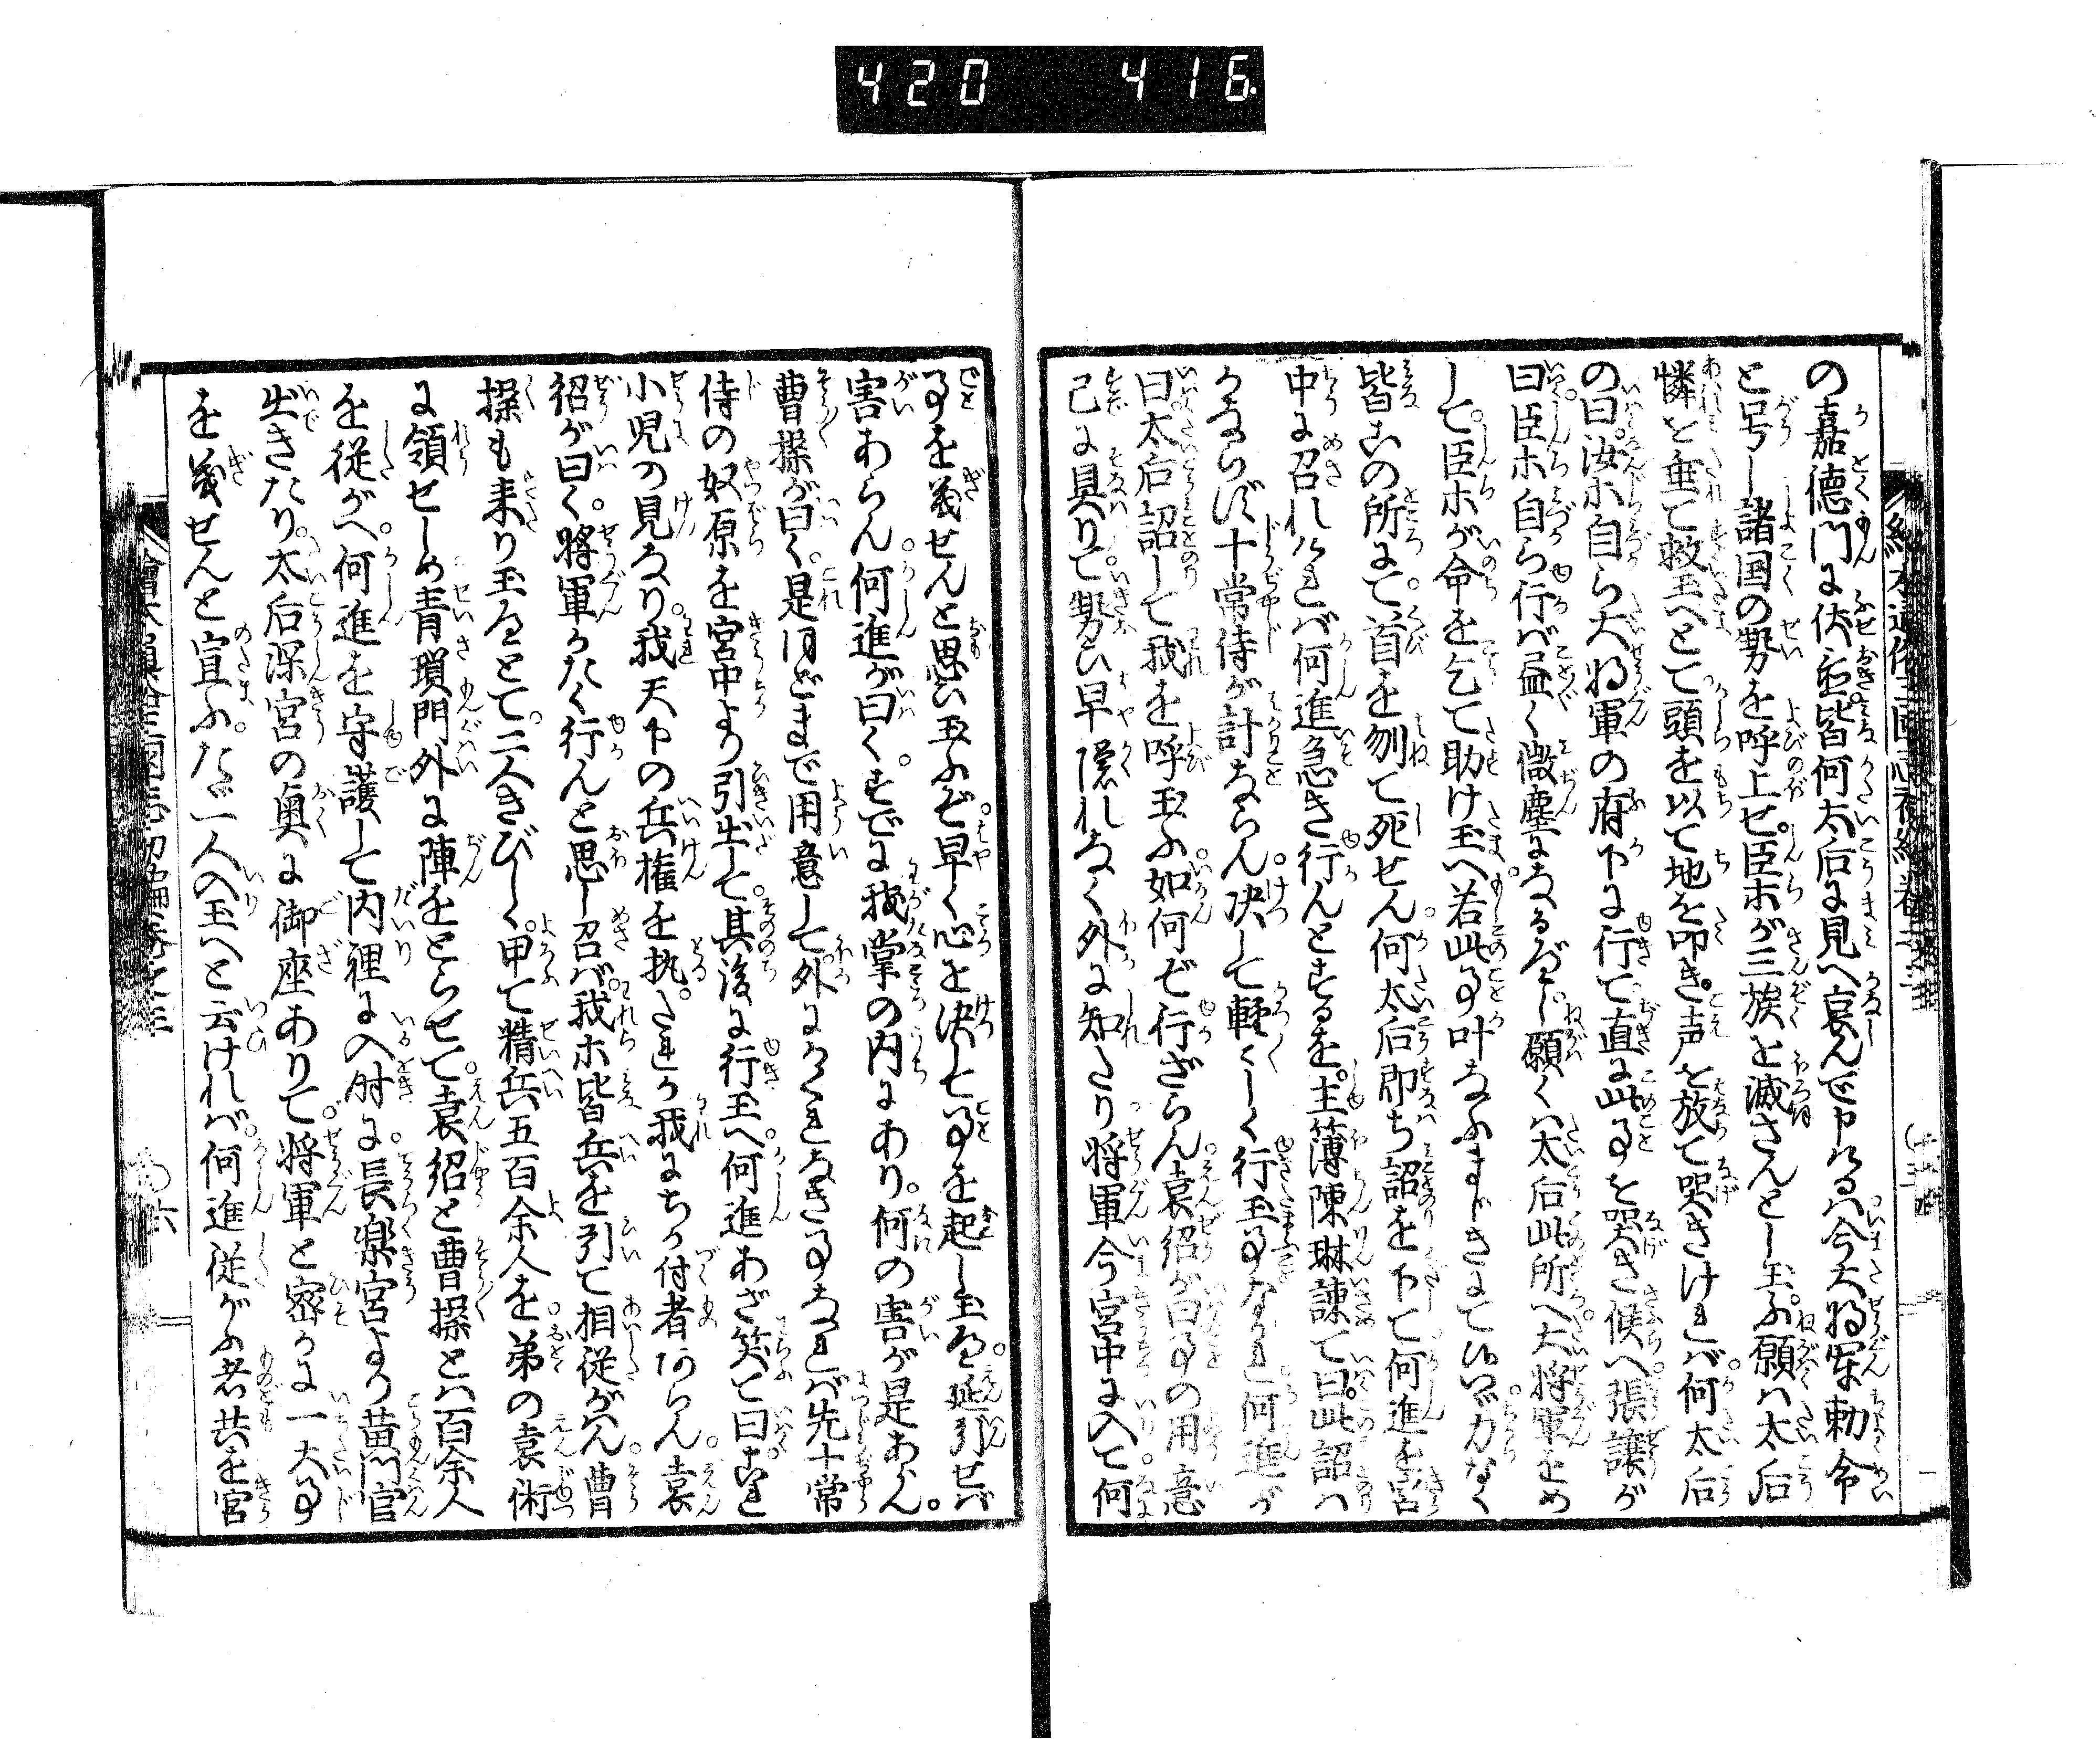 420 416
の嘉徳門に伏置。皆何太后に見へ哀んで申けるハ。今大将軍勅命
と号し諸国の勢を呼上せ。臣等が三族を滅さんとし玉ふ。願ハ太后
憐を垂て救玉へとて。頭を以て地を叩き。声を放て哭きけれバ。何太后
の曰。汝等自ら大将軍の府下に行て直に此事を哭き候へ。張譲が
曰。臣等自ら行バ尽く微塵になるべし。願くハ太后此所へ大将軍をめ
して。臣等が命を乞て助け玉へ。若此事叶なふまじきにて候ハヾ。力なく
皆此の所にて。首を刎て死せん。何太后即ち詔を下して。何進を宮
中に召れけれバ。何進急き行んとするを。主簿陳琳諫て曰。此詔ハ
かならず十常侍が計ならん。决して軽々しく行玉ふ事なかれ。何進が
曰。太后詔して我を呼玉ふ。如何ぞ行ざらん。袁紹が曰。事の用意
已に具りて勢ひ早隠れなく外に知たり。将軍今宮中に入て何
事を義せんと思ひ玉ふぞ。早く心を决して事を起し玉へ。延引せバ
害あらん。何進が曰く。すでに我掌の内にあり。何の害が是あらん。
曹操が曰く。是ほどまで用意して。外にかくれなき事なれバ。先十常
侍の奴原を宮中より引出して。其後に行玉へ。何進あざ笑て曰。これ
小児の見なり。我天下の兵権を執。たれか我にちか付者あらん。袁
紹が曰く。将軍かたく行んと思し召バ。我等皆兵を引て相従がハん。曹
操も来り玉へとて。二人きびしく。甲て精兵五百余人を。弟の袁術
に領せしめ青瑣門外に陣をとらせて。袁紹と曹操とハ百余人
を従がへ。何進を守護して内裡に入時に。長楽宮より黄門官
出きたり。太后深宮の奥に御座ありて。将軍と密かに一大事
を義せんと宣ふ。たゞ一人入玉へと云けれバ。何進従がふ者共を宮